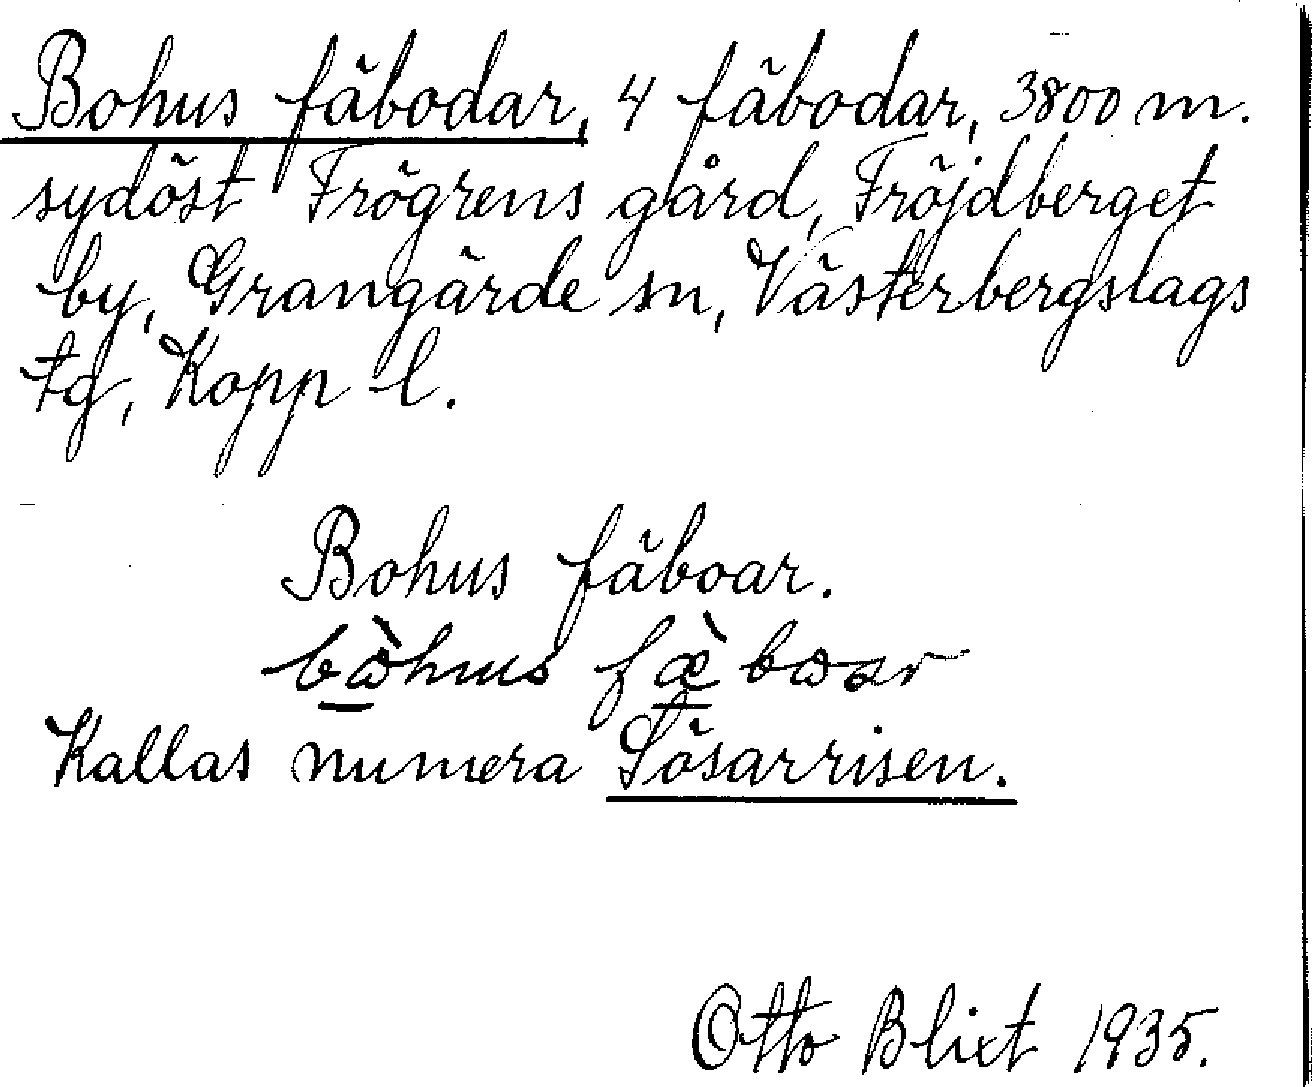 Bohus fäbodar, 4 fäbodar, 3800 m.
sydöst Frögrens gård, Fröjdberget
by, Grangärde sn, Västerbergslags
tg, Kopp l.
Bohus fäboar.
bòhus fæ̀boar
Kallas numera Lösarrisen.
Otto Blixt 1935.